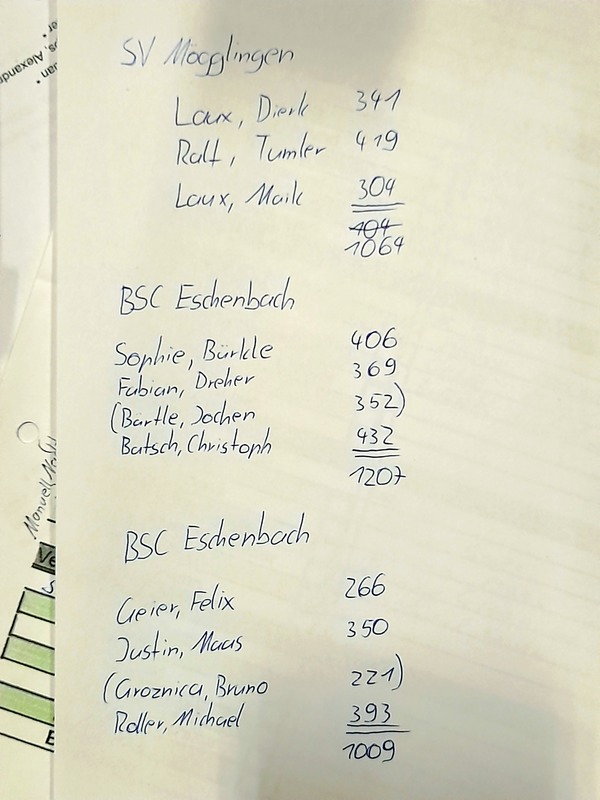 SV Mögglingen
Laux, Dierk 341
Ralf, Tumler 419
Laux, Maik 304
104
1064
BSC Eschenbach
Sophie, Bürkle 406
Fabian, Dreher 369
(Bärtle, Jochen 352)
Butsch, Christoph 432
1207
BSC Eschenbach
Geier, Felix 266
Justin, Maas 350
(Groznica, Bruno 221)
Roller, Michael 393
1009